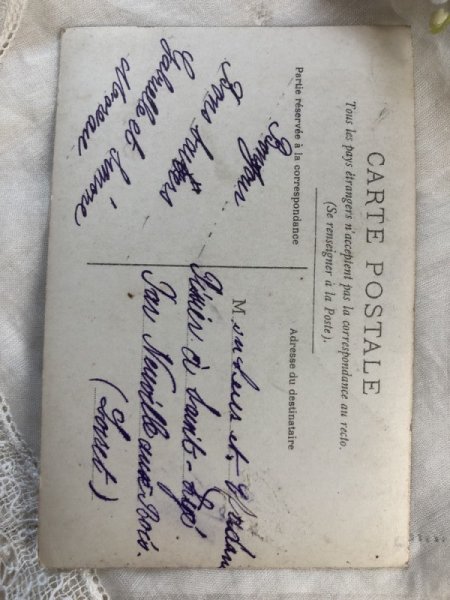 CARTE POSTALE
Tous les pays étrangers n'acceptent pas la correspondance au recto.
(Se renseigner à la Poste).
Partie réservée à la correspondance
Adresse du destinataire
Bonjour
Bons baisers
Gabrielle et Simone
Monsieur et Madame
à Saint-Lyé
Par Neuville aux Bois.
(Loiret)